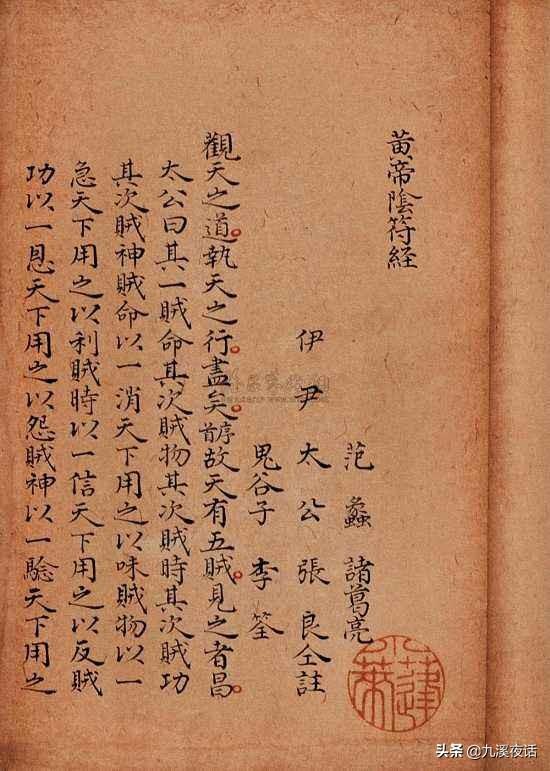 黄帝陰符経
范蠡 諸葛亮
伊尹太公張良仝註
鬼谷子 李筌
觀天之道執天之行盡矣序首故天有五賊見之者昌
太公曰其一賊命其次賊物其次賊時其次賊功
其次賊神賊命以一消天下用之以味賊物以一
急天下用之以利賊時以一信天下用之以反賊
功以一恩天下用之以怨賊神以一騐天下用之
头条 @九溪夜话